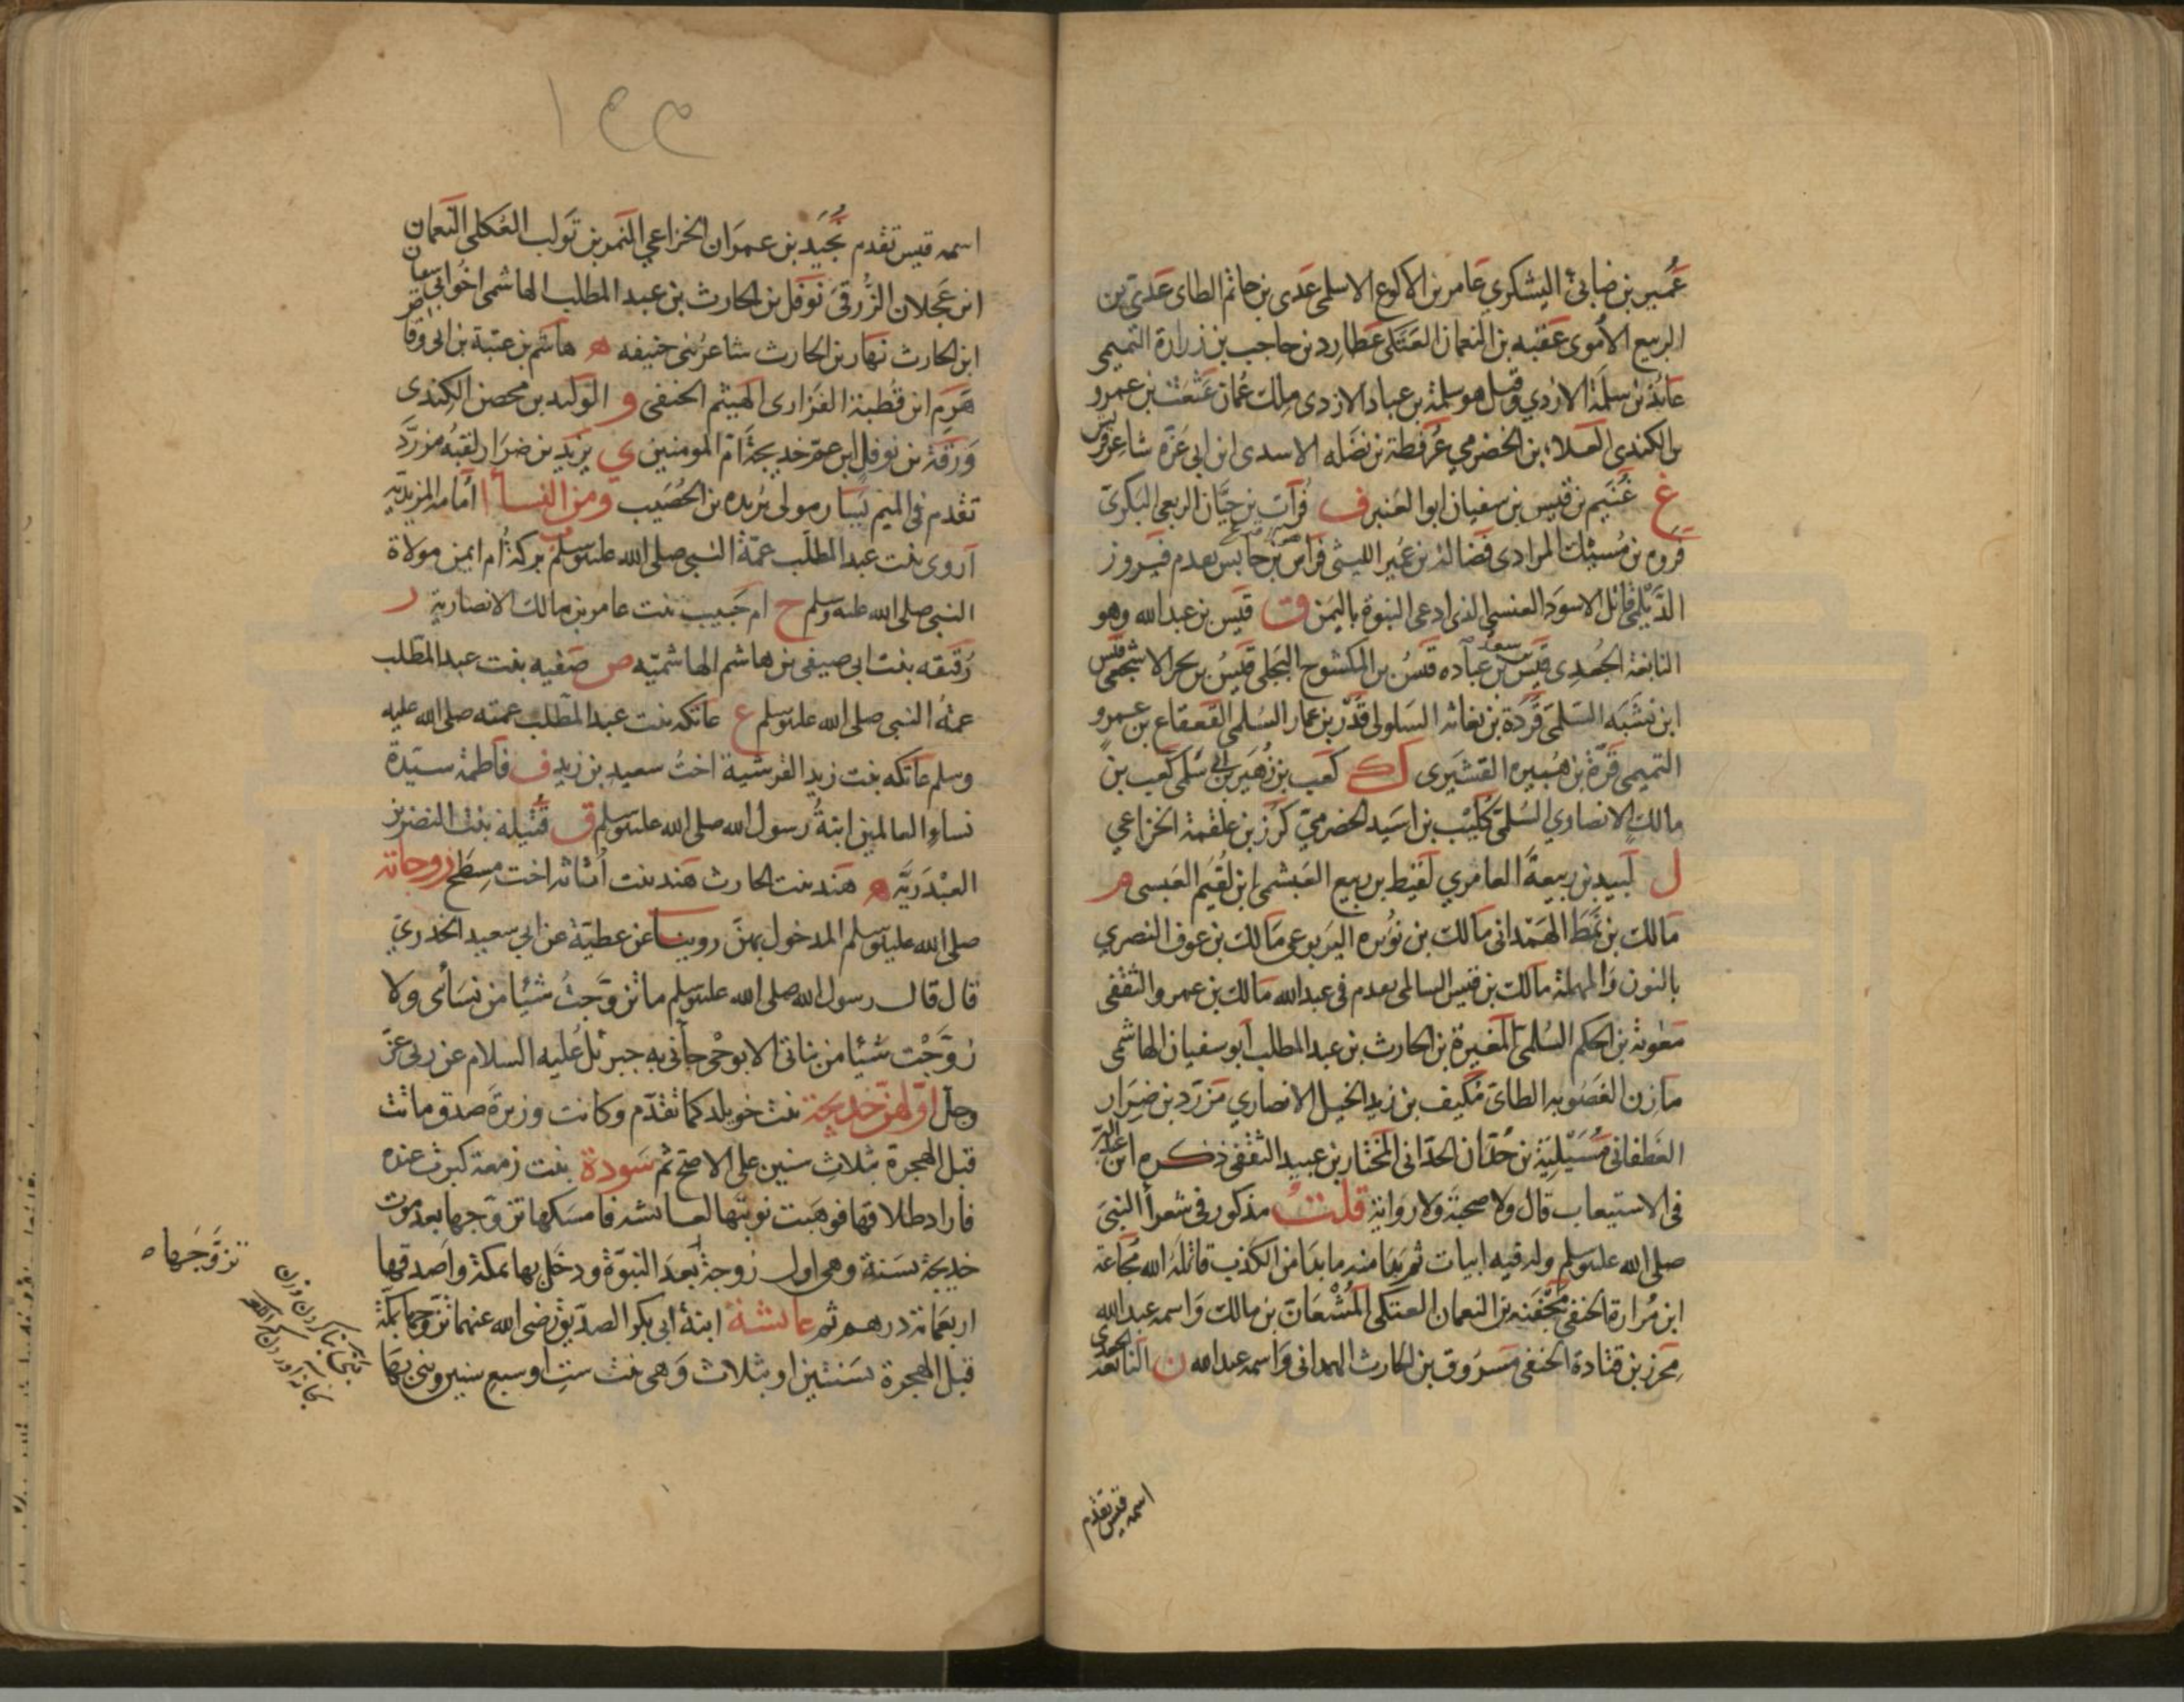 عُمَير بن ضابئ اليشكري عامر بن الاكوع الاسلمى عَدى بن حاتم الطاى عَدىّ بن
الربيع الاموى عقبه بن النعمان العَتكى عُطارِد بن حاجب بن زرارة التميمى
عائذ بن سلمة الازدي وقيل هو سلمة بن عباد الازدى ملك عُمان عَثْعَث بن عمرو
بن الكندى العلاء بن الحضرمي عُرفطة بن نضله الاسدى ابن ابى عَزّه شاعر قريش
غ غُنَيم بن قيس بن سفيان ابو العنبر ف فُرآت بن حيَّان الربعي البكرىّ
فروه بن مُسَيْك المرادى فضالة بن عُمير الليثى فراس بن حابس تقدم فيروز
الدَّيْلمى قاتل الاسود العنسى الذى ادعى النبوة باليمن ق قيس بن عبد الله وهو
النابغة الجعدى قيس بن سعد بن عباده قيسُ بن المكشوح البَجلى قيسُ بن بحر الاشجعى قيس
ابن نشبَه السّلمى قَردة بن نفاثه السَلولى قُدَر بن عمار السُلمى القعقاع بن عمرو
التميمى قرّة بن هُبَيره القشيرى ك كعب بن زُهَير بن ابى سُلمى كعب بن
مالك الانصاري السُلمىّ كُليْب بن اسَيد الحضرميّ كُرز بن علقمة الخزاعي
ل لَبيد بن ربيعة العامري لقيط بن ربيع العَبشمى ابن لُقَيم العَبسى م
مالك بن نَمَط الهَمْدانى مَالك بن نُوَيره اليَربوعى مَالك بن عوف النصري
بالنون وَالمهملة مالك بن قيس السالمى تقدم فى عبد الله مَالك بن عمرو الثقفى
معٰوية بن الحكم السُلمى المغيرة بن الحارث بن عبد المطلب ابو سفيان الهاشمى
مَازن الغَضوبه الطاىّ مُكنِف بن زيد الخيل الانصاري مُزرّد بن ضِرَار
الغَطفانى مُسَيْلِيَة بن حُدّان الحدّانى المختار بن عبيد الثقفى ذكره ابن عبد البَرّ
فى الاستيعاب قال ولا صحبَة ولا روَاية قلتُ مذكور فى شعرأ النبىَ
صلى الله عليه وسلم وله فيه ابيات ثم بدَا منه ما بدَا من الكذب قاتلهُ الله مُجّاعة
ابن مُرارة الحنفى مَجْفَنة بن النعمان العتكى المُشْعَار بن مالك وَاسمه عبد الله
مُحرز بن قتادة الحنفى مَسرُوق بن الحارث الهمدانى وَاسمه عبد الله ن النابغة الجعدى
اسمه قيس تقدم
اسمه قيس تقدم نُجَيَد بن عمرَان الخزاعي النَمر بن تَولب العُكلى النعمان
ابن عجلان الزُّرقىَ نوفل بن الحارث بن عبد المطلب الهاشمى اخُو ابى سفيان
ابن الحارث نهار بن الحارث شاعر بنى حنيفه ه هاشم بن عتبة بن ابى وقاص
هَرَم ابن قُطبة الفَزارى الهَيثم الحنفى و الوَليد بن محصن الكِندى
وَرَقَة بن نوفل ابن عمّ خديجة امّ المومنين ي يزيد بن ضرَار لقبهُ مزرَّد
تقدم فى الميم يَسَار مولى بُريده بن الحُصَيب ومن النسأ ا اُمَامه المزيديّه
آروى بنت عبد المطلّب عمّة النبى صلى الله عليه وسلم ب بركةُ اُم ايمن مولاة
النبى صلى الله عليه وسلم ح ام حَبيب بنت عامر بن مالك الانصارية ر
رُقيَقه بنت ابى صيفى بن هاشم الهاشميّه ص صَفيه بنت عبد المطلب
عمّه النبى صلى الله عليه وسلم ع عاتكه بنت عبد المطلب عمته صلى الله عليه
وسلم عاتكه بنت زيد القرشية اختُ سعيد بن زيد ف فاطمة سيّدة
نساء العالمين ابنةُ رسول الله صلى الله عليه وسلم ق قُتيله بنت النضر بن
العبْدَريَّه ه هَند بنت الحارث هَند بنت أثاثه اخت مِسطح زوجاته
صلى الله عليه وسلم المدخول بهنّ روينا عن عطيّة عن ابي سعيد الخدريّ
قال قال رسول الله صلى الله عليه وسلم ما تزوَّجتُ شيئًا من نسَائى ولا
زوَّجْت شيئًا من بناتى الا بوحْى جآنى به جبرئل عليه السلام عن ربى عزّ
وجلّ اوّلهنّ خديجة بنت خويلد كما تقدّم وكانت وزيرَة صدق وماتت
قبل الهجرة بثلاثِ سنين على الاصحّ ثم سَودة بنت زمعة كبرت عنده
فاراد طلاقها فوهَبت نوبتها لعائشه فامسَكها تزوّجها بعد موت
خديجة بسَنة وهى اول زوجة بَعدَ النبوّة ودخَل بها بمكة واصدقها
اربعمائة درهم ثم عائشة ابنة ابى بكر الصدّيق رضى الله عنهما تزوجها بمكّة
قبل الهجرة بسَنتين او بثلاث وَهى بنت ستٍ او سبع سنين وبنى بهَا
تزوَّجَها